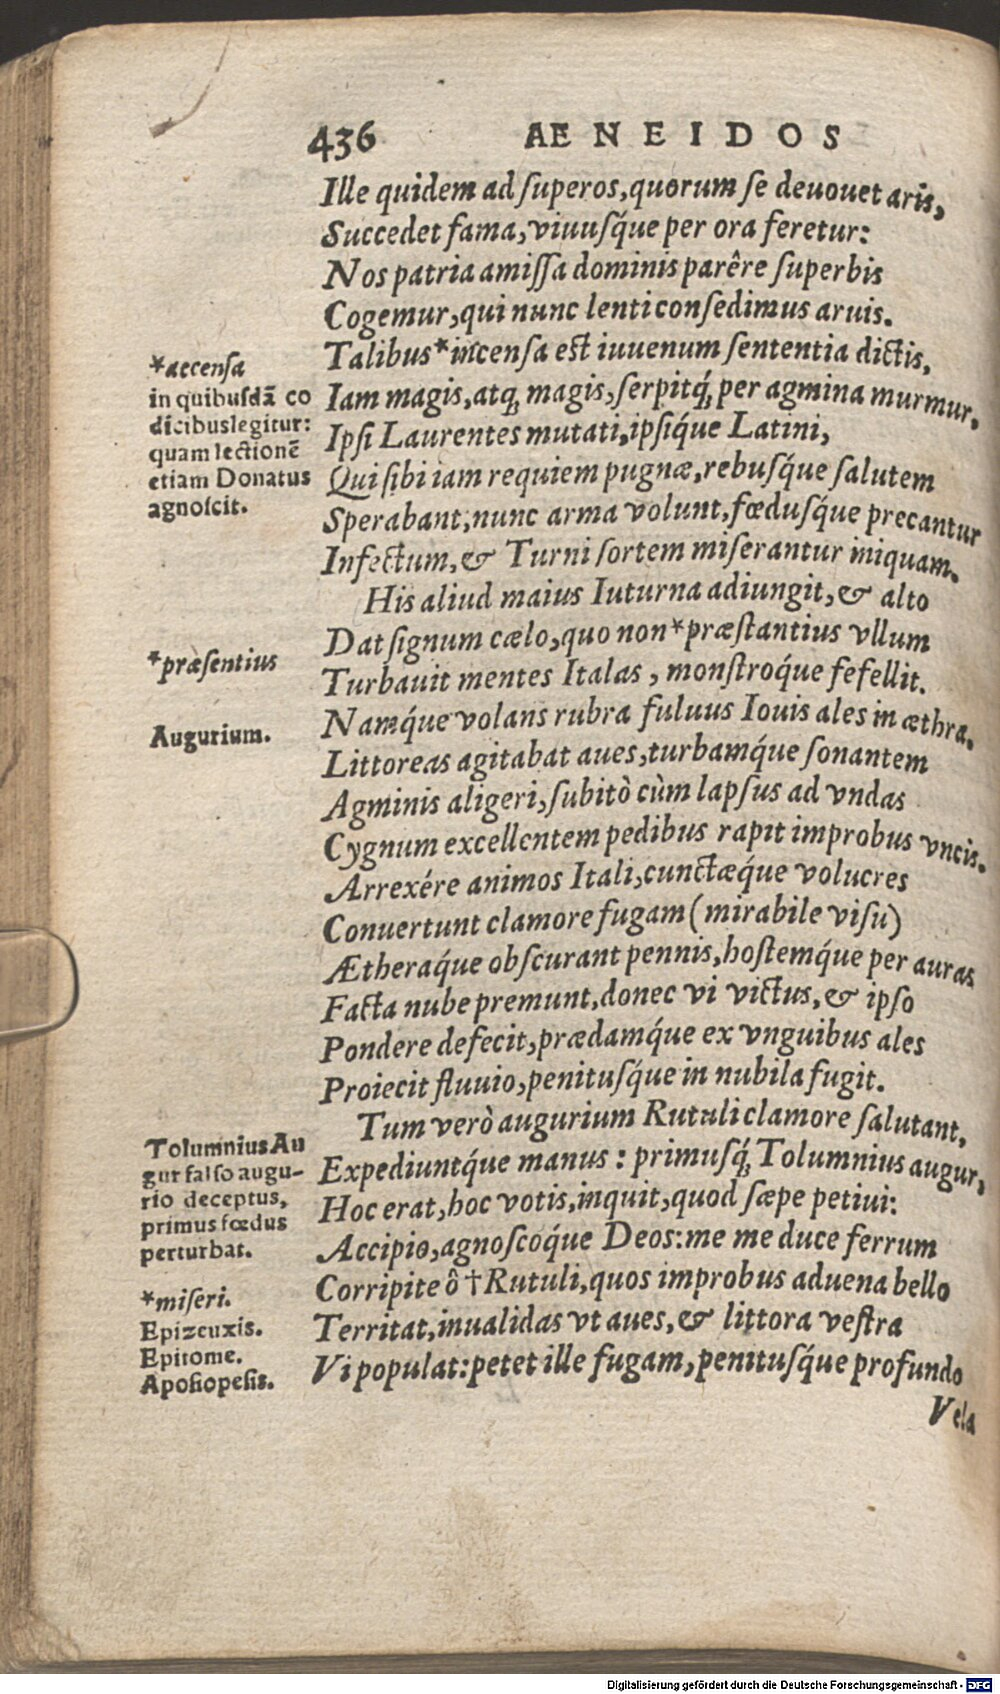 436 AENEIDOS
Ille quidem ad ſuperos, quorum ſe deuouet aris,
Succedet fama, viuuſq́ue per ora feretur:
Nos patria amiſſa dominis parêre ſuperbis
Cogemur, qui nunc lenti conſedimus aruis.
Talibus*incenſa est iuuenum ſententia dictis,
Iam magis, atq; magis, ſerpitq́; per agmina murmur.
Ipſi Laurentes mutati, ipſiq́ue Latini,
Qui ſibi iam requiem pugnæ, rebuſq́ue ſalutem
Sperabant, nunc arma volunt, fœduſq́ue precantur
Infectum, & Turni ſortem miſerantur iniquam.
His aliud maius Iuturna adiungit, & alto
Dat ſignum cælo, quo non*præstantius vllum
Turbauit mentes Italas, monstroq́ue fefellit.
Namq́ue volans rubra fuluus Iouis ales in æthra.
Littoreas agitabat aues, turbamq́ue ſonantem
Agminis aligeri, ſubitò cùm lapſus ad vndas
Cygnum excellentem pedibus rapit improbus vncis.
Arrexére animos Itali, cunctæq́ue volucres
Conuertunt clamore fugam (mirabile viſu)
Ætheraq́ue obſcurant pennis, hostemq́ue per auras
Facta nube premunt, donec vi victus, & ipſo
Pondere defecit, prædamq́ue ex vnguibus ales
Proiecit fluuio, penituſq́ue in nubila fugit.
Tum verò augurium Rutuli clamore ſalutant,
Expediuntq́ue manus: primuſq́; Tolumnius augur,
Hoc erat, hoc votis, inquit, quod ſæpe petiui:
Accipio, agnoſcoq́ue Deos: me me duce ferrum
Corripite ô †Rutuli, quos improbus aduena bello
Territat, inualidas vt aues, & littora vestra
Vi populat: petet ille fugam, penituſq́ue profundo
Vela
*accenſa
in quibuſdā co
dicibus legitur:
quam lectionē
etiam Donatus
agnoſcit.
*præſentius
Augurium.
Tolumnius Au
gur falſo augu-
rio deceptus,
primus fœdus
perturbat.
*miſeri.
Epizeuxis.
Epitome.
Apoſiopeſis.
Digitalisierung gefördert durch die Deutsche Forschungsgemeinschaft - DFG